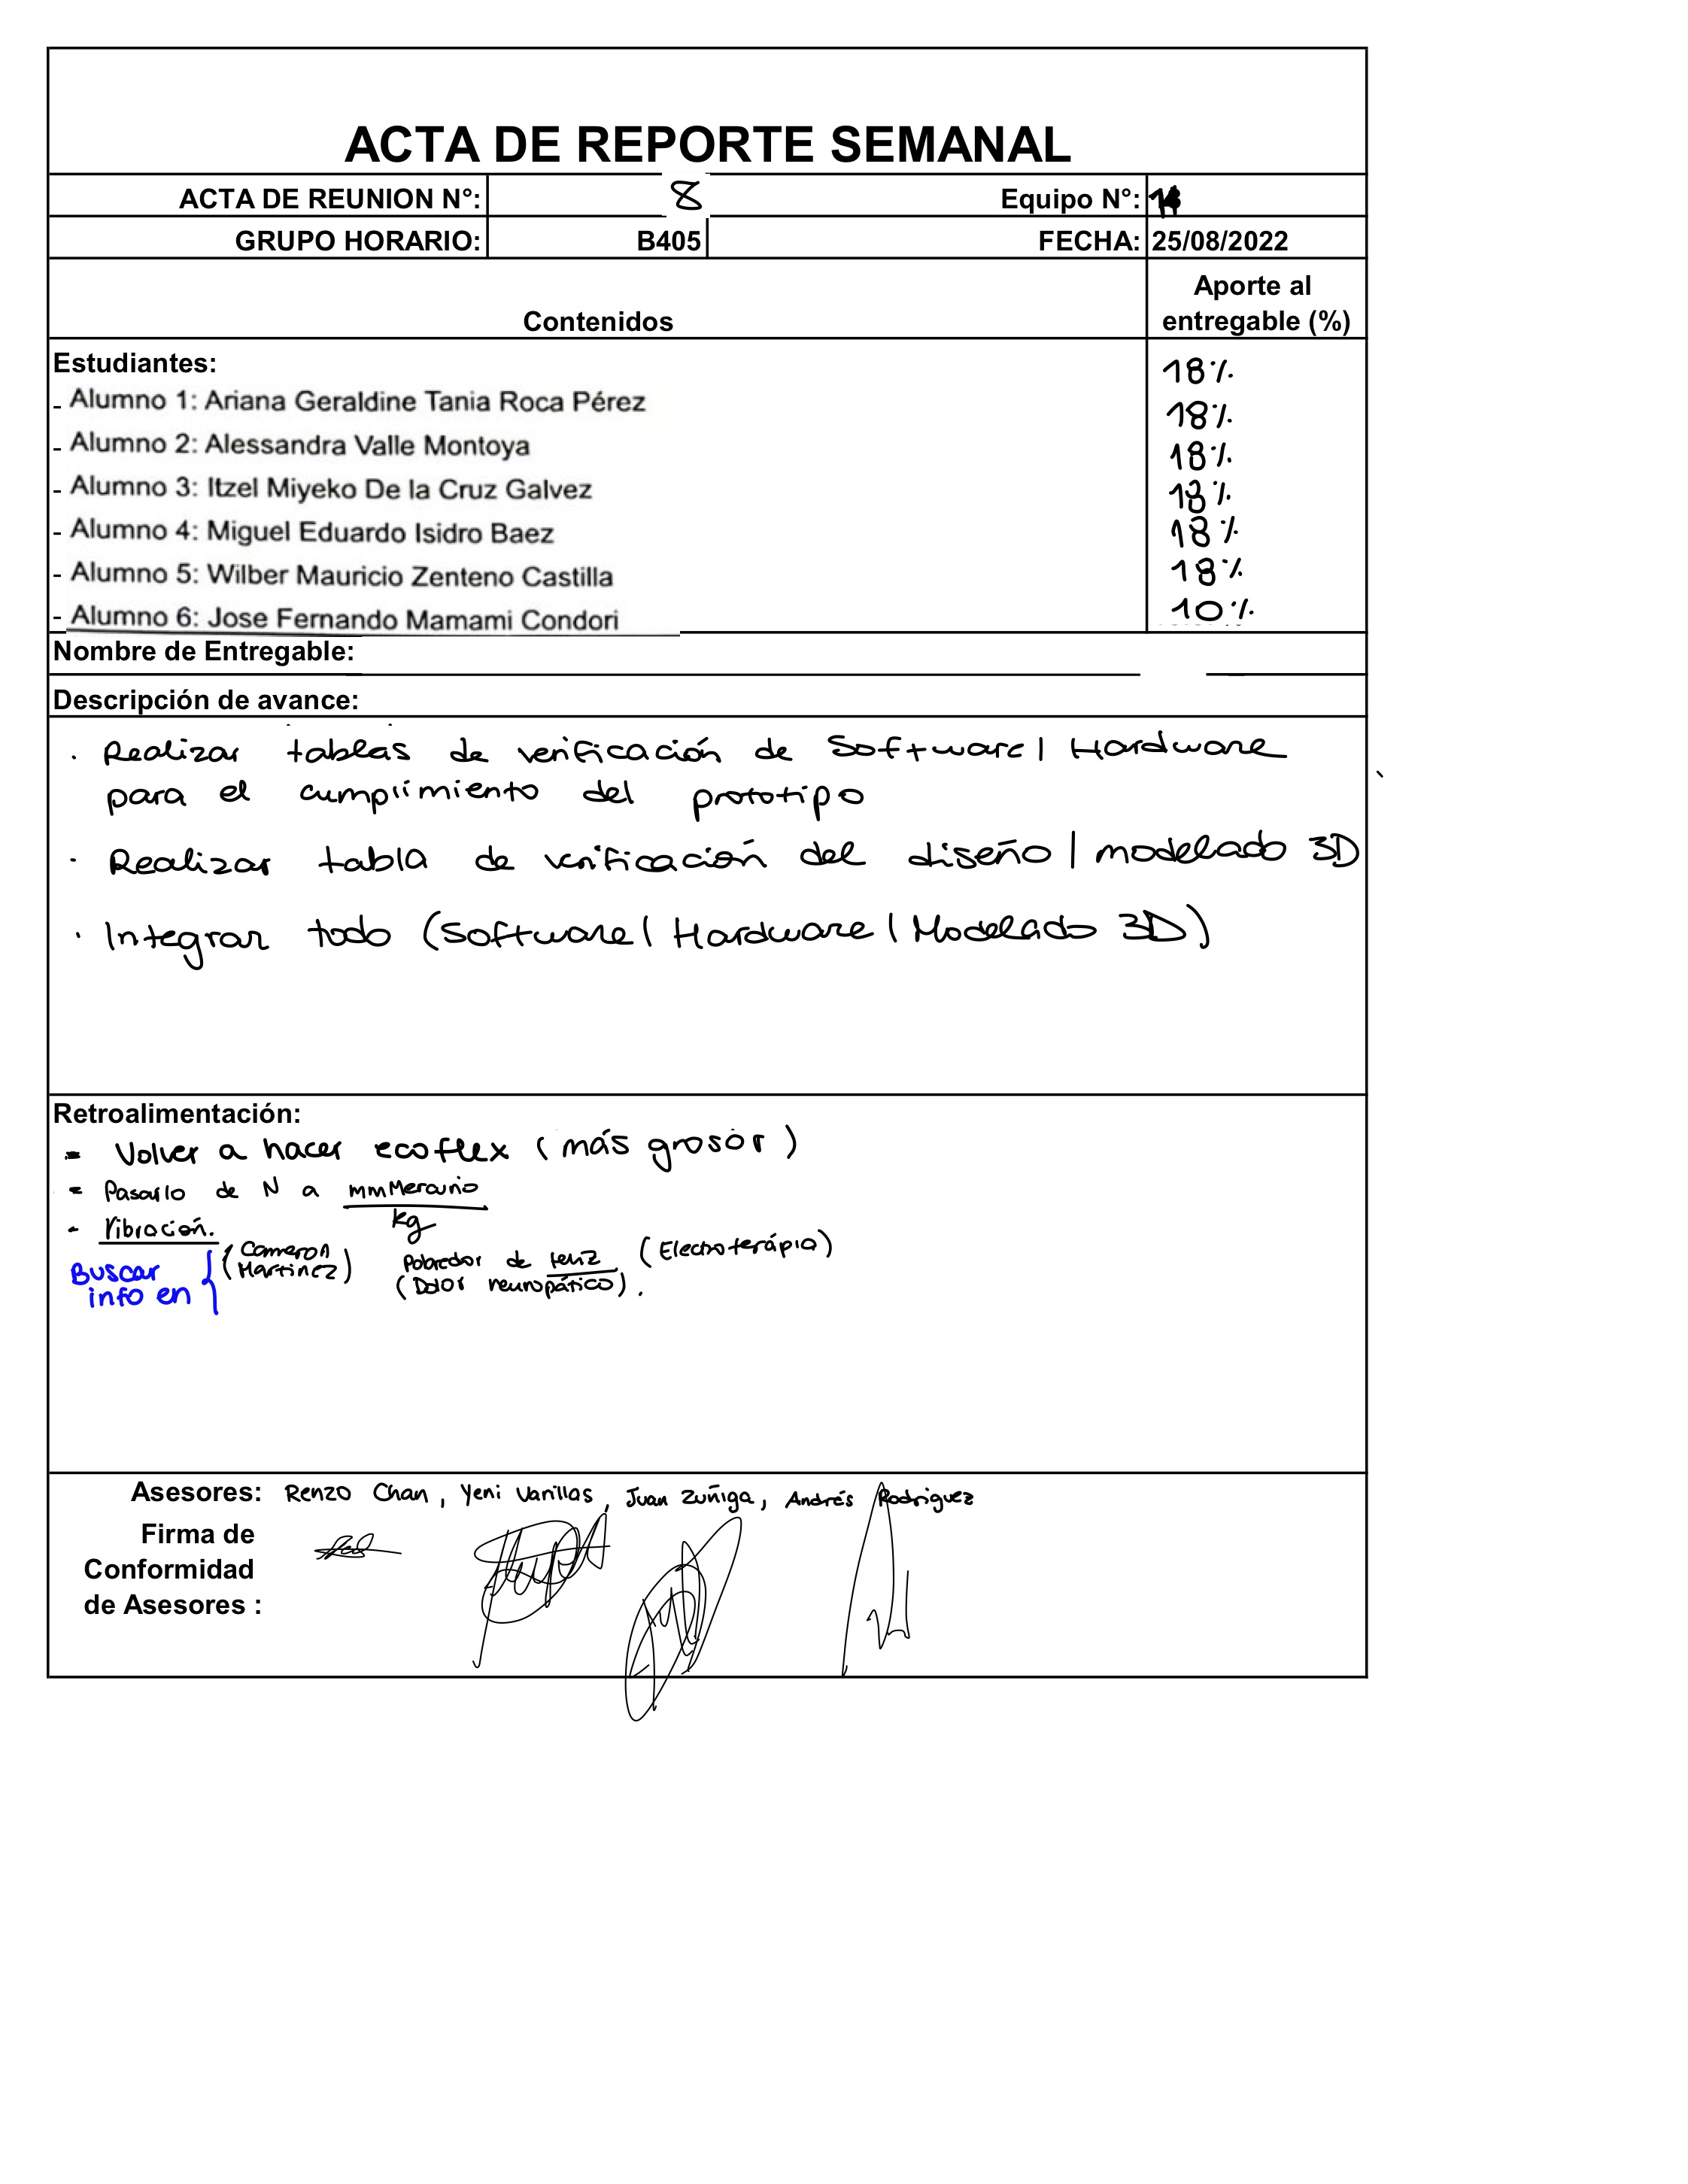 ACTA DE REPORTE SEMANAL
ACTA DE REUNION N°: 8 Equipo N°:
GRUPO HORARIO: B405 FECHA: 25/08/2022
Contenidos Aporte al entregable (%)
Estudiantes: 18%
- Alumno 1: Ariana Geraldine Tania Roca Pérez 18%
- Alumno 2: Alessandra Valle Montoya 18%
- Alumno 3: Itzel Miyeko De la Cruz Galvez 18%
- Alumno 4: Miguel Eduardo Isidro Baez 18%
- Alumno 5: Wilber Mauricio Zenteno Castilla 18%
- Alumno 6: Jose Fernando Mamami Condori 10%
Nombre de Entregable:
Descripción de avance:
· Realizar tablas de verificación de Software | Hardware
para el cumplimiento del prototipo
· Realizar tabla de verificación del diseño | modelado 3D
· Integrar todo (Software | Hardware | Modelado 3D)
Retroalimentación:
- Volver a hacer ecoflex (más grosor)
- Pasarlo de N a mmMercurio
kg
- Vibración.
Buscar info en { (Cameron Martinez) de tenz (Electroterápia)
(Dolor neuropático).
Asesores: Renzo Chan, Yeni Varillas, Juan Zuñiga, Andrés Rodriguez
Firma de
Conformidad
de Asesores :